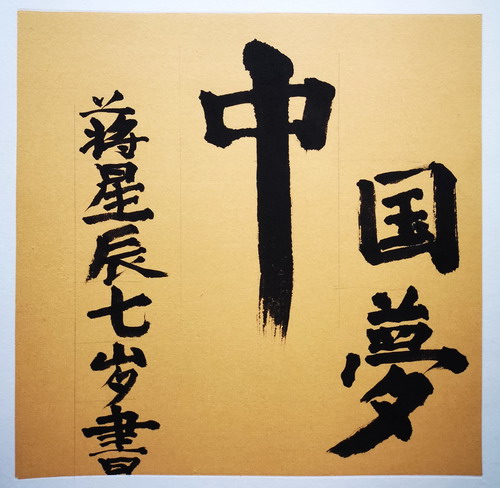 中
国夢
蒋星辰七岁書